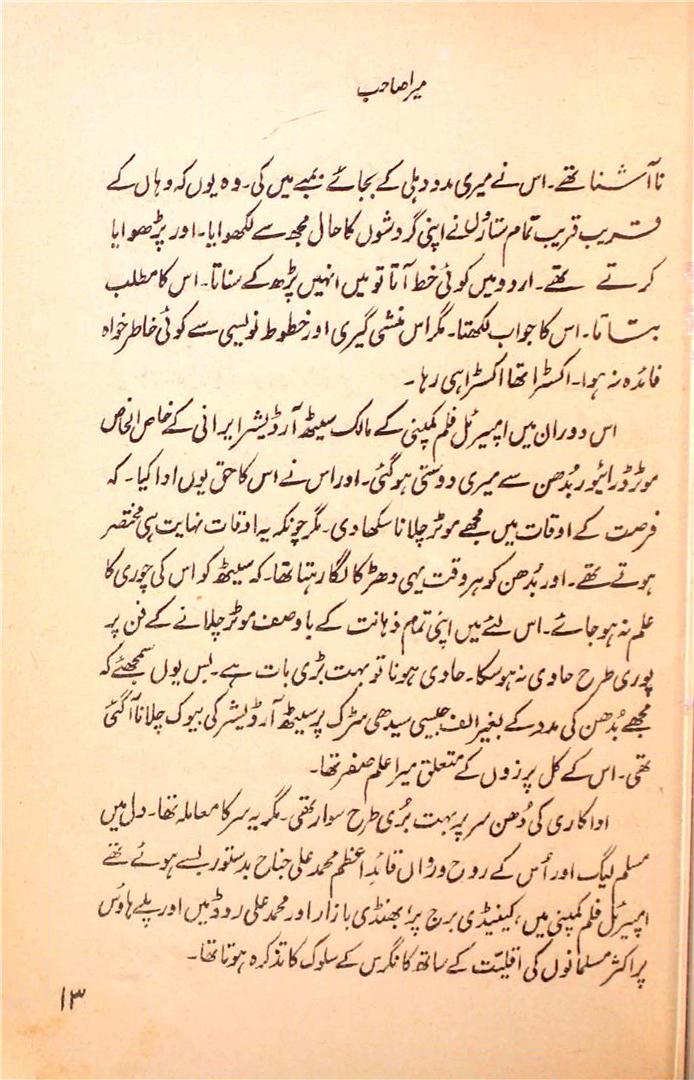 میرا صاحب
ناآشنا تھے۔ اس نے میری مدد دہلی کے بجائے بمبے میں کی۔ وہ یوں کہ وہاں کے
قریب قریب تمام ستاروں نے اپنی گردشوں کا حال مجھ سے لکھوایا۔ اور پڑھوایا
کرتے تھے۔ اردو میں کوئی خط آتا تو میں انہیں پڑھ کے سناتا۔ اس کا مطلب
بتاتا۔ اس کا جواب لکھتا۔ مگر اس منشی گیری اور خطوط نویسی سے کوئی خاطر خواہ
فائدہ نہ ہوا۔ اکسٹرا تھا اکسٹرا ہی رہا۔
اس دوران میں امپیرئل فلم کمپنی کے مالک سیٹھ آرڈیشر ایرانی کے خاص الخاص
موٹر ڈرائیور بُدھن سے میری دوستی ہو گئی۔ اور اس نے اس کا حق یوں ادا کیا۔ کہ
فرصت کے اوقات میں مجھے موٹر چلانا سکھا دی۔ مگر چونکہ یہ اوقات نہایت ہی مختصر
ہوتے تھے۔ اور بُدھن کو ہر وقت یہی دھڑکا لگا رہتا تھا۔ کہ سیٹھ کو اس کی چوری کا
علم نہ ہو جائے۔ اس لئے میں اپنی تمام ذہانت کے باوصف موٹر چلانے کے فن پر
پوری طرح حاوی نہ ہو سکا۔ حاوی ہونا تو بہت بڑی بات ہے۔ بس یوں سمجھئے کہ
مجھے بُدھن کی مدد کے بغیر الف جیسی سیدھی سڑک پر سیٹھ آرڈیشر کی بیوک چلانا آ گئی
تھی۔ اس کے کل پرزوں کے متعلق میرا علم صفر تھا۔
اداکاری کی دُھن سر پہ بہت بُری طرح سوار تھی۔ مگر یہ سر کا معاملہ تھا۔ دل میں
مسلم لیگ اور اُس کے روح و رواں قائدِ اعظم محمد علی جناح بدستور بسے ہوئے تھے
امپیرئل فلم کمپنی میں، کینیڈی برج پر، بھنڈی بازار اور محمد علی روڈ میں اور پلے ہاؤس
پر اکثر مسلمانوں کی اقلیّت کے ساتھ کانگرس کے سلوک کا تذکرہ ہوتا تھا۔
۱۳